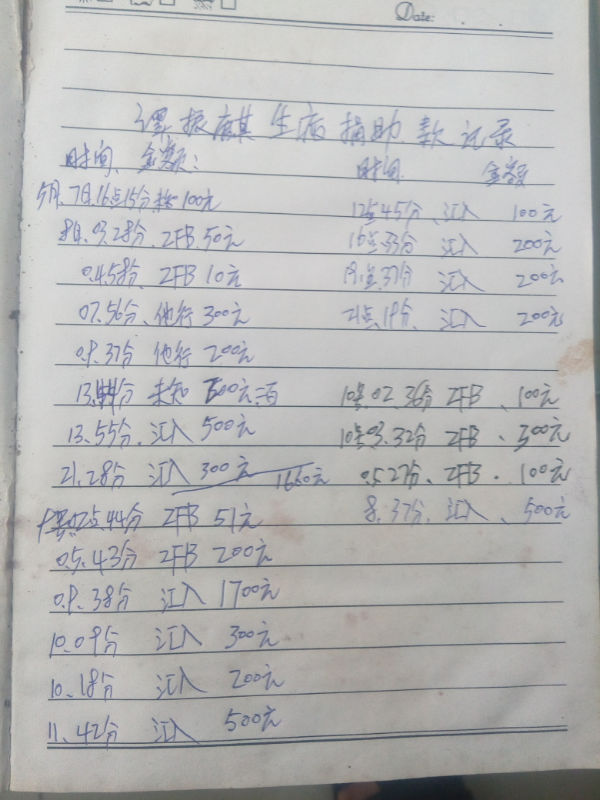 Date:
谭振麒生病捐助款记录
时间、金额:
5月.7日.16点15分 100元
8日.03.28分、ZFB.50元
04.58分、ZFB 10元
07.56分、他行 300元
09.37分 他行 200元
分 未知 500元
13.55分.汇入 500元
21.28分 汇入 300元 1660元
02点44分 ZFB 51元
05.43分 ZFB 200元
09.38分 汇入 1700元
10.09分 汇入 300元
10.18分 汇入 200元
11.42分 汇入 500元
时间 金额
12点45分、汇入 100元
16点33分 汇入 200元
19点37分 汇入 200元
21点19分、汇入 200元
10号.02.36分 ZFB、100元
10号03.32分 ZFB、300元
05.27分、ZFB.100元
8.37分、汇入、500元